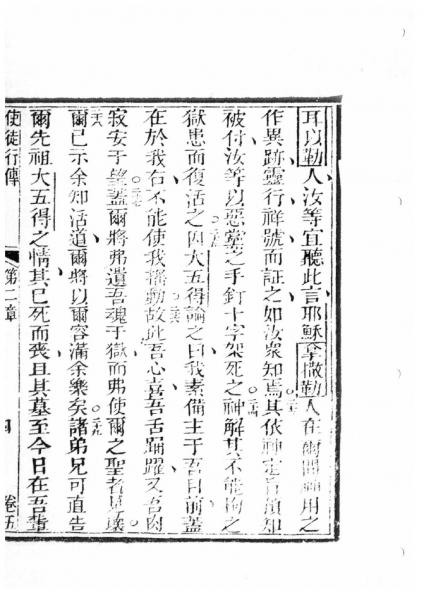 耳以勒人汝等宜聽此言耶穌拿撒勒人在爾間神用之
作異跡靈行祥號而証之如汝衆知焉其依神定旨預知
被付汝等以惡黨之手釘十字架死之神解其不能拘之
獄患而復活之因大五得論之曰我素備主于吾目前蓋
在於我右不能使我搖動故此吾心喜吾舌踊躍又吾肉
寂安于望蓋爾將弗遺吾魂于獄而弗使爾之聖者見壞
爾已示余知活道爾將以爾容滿余樂矣諸弟兄可直告
爾先祖大五得之情其已死而喪且其墓至今日在吾輩
使徒行傳 第二章 四 卷五